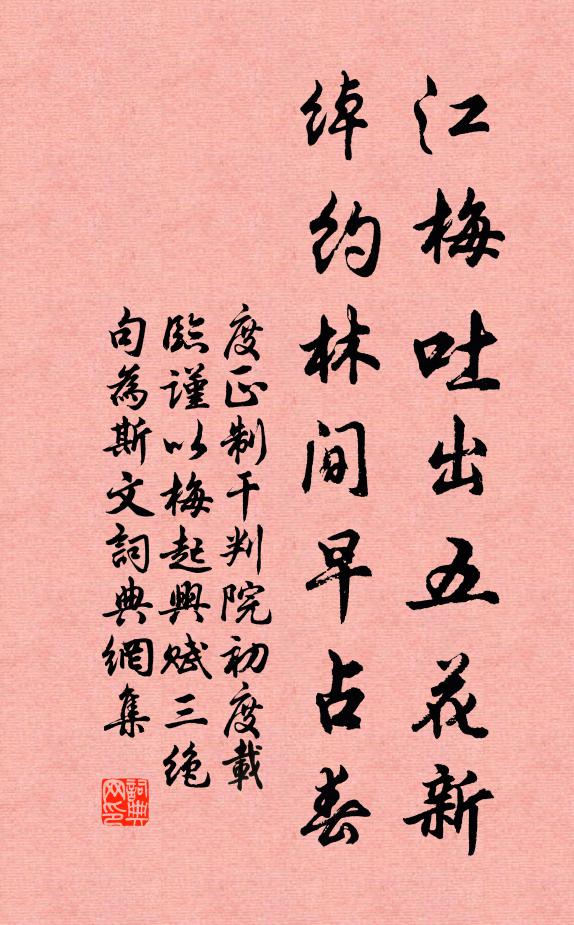 江梅吐出五花新
绰约林间早占春
度正制干判院初度載
臨謹以梅起興赋三绝
句為斯文詞典網集
詞典网印